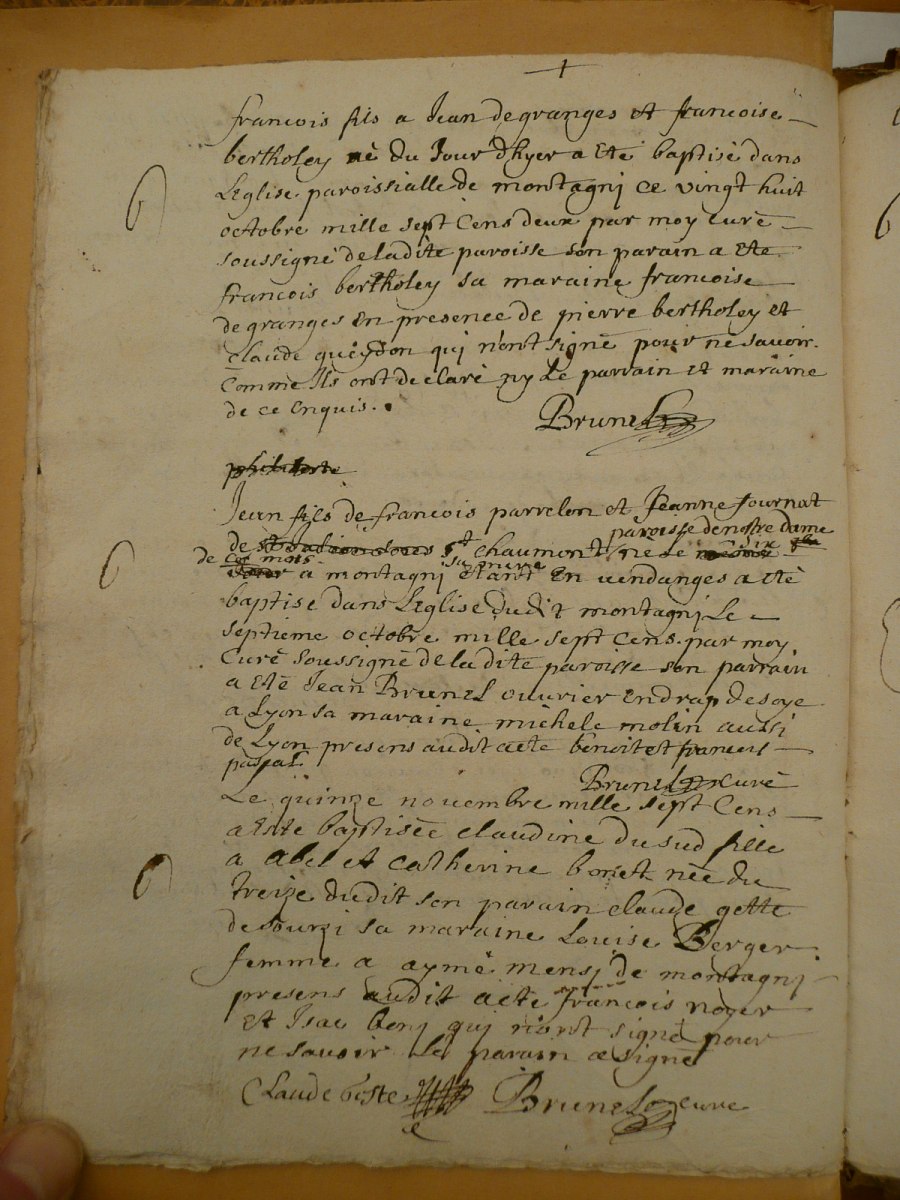 francois fils a Jean degranges et francoise
bertholey né du Jour dhyer a Eté baptisé dans
Leglise paroissialle de montagnj ce vingt huit
octobre mille sept Cens deux par moy curé
soussigné de ladite paroisse son parain a Ete
francois bertholey sa maraine francoise
degranges En presence de pierre bertholey et
claude gueydon quj n'ont signé pour ne savoir
Comme Ils ont declaré ny Le parrain et maraine
de ce Enquis.
Brunel
Jean fils de francois parrelon et Jeanne fournat
paroisse de nostre dame
de St chaumont né Le six
de ce mois sa mere
a montagnj Etant En vendanges a eté
baptisé dans Leglise dudit montagnj Le
septieme octobre mille sept Cens par moy
Curé soussigné de ladite paroisse son parrain
a Eté Jean Brunel ouvrier En drap de soye
a Lyon sa maraine michele molin aussi
de Lyon presens audit acte benoit et francois
pascal
Brunel curé
Le quinze novembre mille sept Cens
a Este baptisée claudine du sud fille
a Abel et Catherine bonet née du
treize dudit son parain claude gette
de sourzi sa maraine Louise Berger
femme a aymé mensj de montagnj
presens audit acte francois noyer
et Isac bonj quj n'ont signé pour
ne savoir Le parain a signé
Claude
Brunel curé